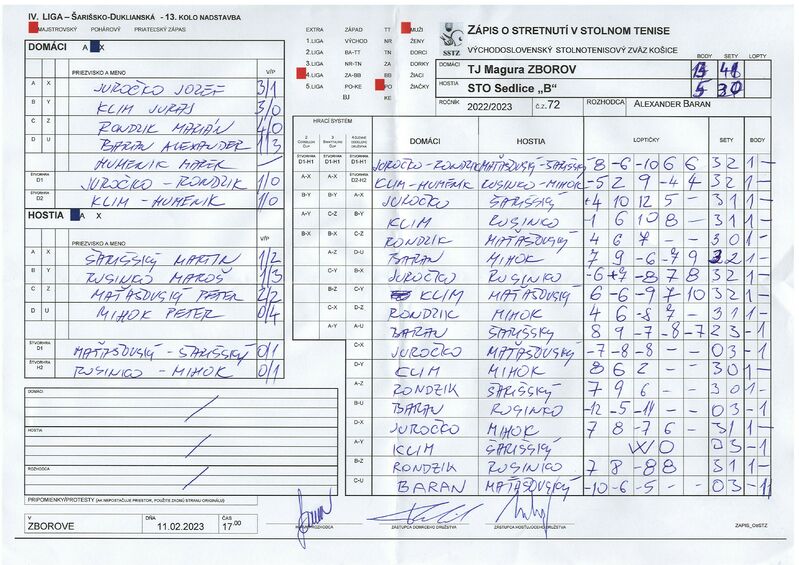 IV. LIGA – ŠARIŠSKO-DUKLIANSKÁ - 13. KOLO NADSTAVBA
MAJSTROVSKÝ POHÁROVÝ PRIATEĽSKÝ ZÁPAS
DOMÁCI A X
PRIEZVISKO A MENO V/P
A X JUROČKO JOZEF 3/1
B Y KLIM JURAJ 3/0
C Z RONDZIK MARIÁN 4/0
D U BARAN ALEXANDER 1/3
HUMENIK MAREK –
ŠTVORHRA D1 JUROČKO - RONDZIK 1/0
ŠTVORHRA D2 KLIM - HUMENIK 1/0
HOSTIA A X
PRIEZVISKO A MENO V/P
A X ŠARIŠSKÝ MARTIN 1/2
B Y RUSINKO MAROŠ 1/3
C Z MAŤAŠOVSKÝ PETER 2/2
D U MIHOK PETER 0/4
ŠTVORHRA D1 MAŤAŠOVSKÝ - ŠARIŠSKÝ 0/1
ŠTVORHRA H2 RUSINKO - MIHOK 0/1
DOMÁCI
HOSTIA
ROZHODCA
PRIPOMIENKY/PROTESTY (AK NEPOSTAČUJE PRIESTOR, POUŽITE ZADNÚ STRANU ORIGINÁLU)
V ZBOROVE DŇA 11.02.2023 ČAS 17.00
EXTRA ZÁPAD TT MUŽI
1.LIGA VÝCHOD NR ŽENY
2.LIGA BA-TT TN DORCI
3.LIGA NR-TN ZA DORKY
4.LIGA ZA-BB BB ŽIACI
5.LIGA PO-KE PO ŽIAČKY
BJ KE
SSTZ
ZÁPIS O STRETNUTÍ V STOLNOM TENISE
VÝCHODOSLOVENSKÝ STOLNOTENISOVÝ ZVÄZ KOŠICE
BODY SETY LOPTY
DOMÁCI TJ Magura ZBOROV
HOSTIA STO Sedlice „B"
ROČNÍK 2022/2023 č.z. 72 ROZHODCA ALEXANDER BARAN
HRACÍ SYSTÉM
DOMÁCI HOSTIA LOPTIČKY SETY BODY
ŠTVORHRA D1-H1 JUROČKO - RONDZIK MAŤAŠOVSKÝ - ŠARIŠSKÝ -8 -6 -10 6 6 3 2 1 –
A-X ŠTVORHRA D2-H2 KLIM - HUMENIK RUSINKO - MIHOK -5 2 9 -4 4 3 2 1 –
B-Y A-X JUROČKO ŠARIŠSKÝ 4 10 12 5 – 3 1 1 –
A-Y B-Y KLIM RUSINKO -1 6 10 8 – 3 1 1 –
C-Z RONDZIK MAŤAŠOVSKÝ 4 6 7 – – 3 0 1 –
D-U BARAN MIHOK 7 9 -6 -7 9 3 2 1 –
A-Y JUROČKO RUSINKO -6 7 -8 7 8 3 2 1 –
B-Z KLIM MAŤAŠOVSKÝ 6 -6 -9 7 10 3 2 1 –
C-U RONDZIK MIHOK 4 6 -8 7 – 3 1 1 –
D-X BARAN ŠARIŠSKÝ 8 9 -7 -8 -7 2 3 – 1
C-X A-Z JUROČKO MAŤAŠOVSKÝ -7 -8 -8 – – 0 3 – 1
D-Y KLIM MIHOK 8 6 2 – – 3 0 1 –
A-Z RONDZIK ŠARIŠSKÝ 7 9 6 – – 3 0 1 –
B-U BARAN RUSINKO -12 -5 -11 – – 0 3 – 1
D-X JUROČKO MIHOK 7 8 -7 6 – 3 1 1 –
A-Y KLIM ŠARIŠSKÝ WO 0 3 – 1
B-Z RONDZIK RUSINKO 7 8 -8 8 3 1 1 –
C-U BARAN MAŤAŠOVSKÝ -10 -6 -5 – – 0 3 – 1
ROZHODCA ZÁSTUPCA DOMÁCEHO DRUŽSTVA ZÁSTUPCA HOSŤUJÚCEHO DRUŽSTVA
ZAPIS_OsSTZ